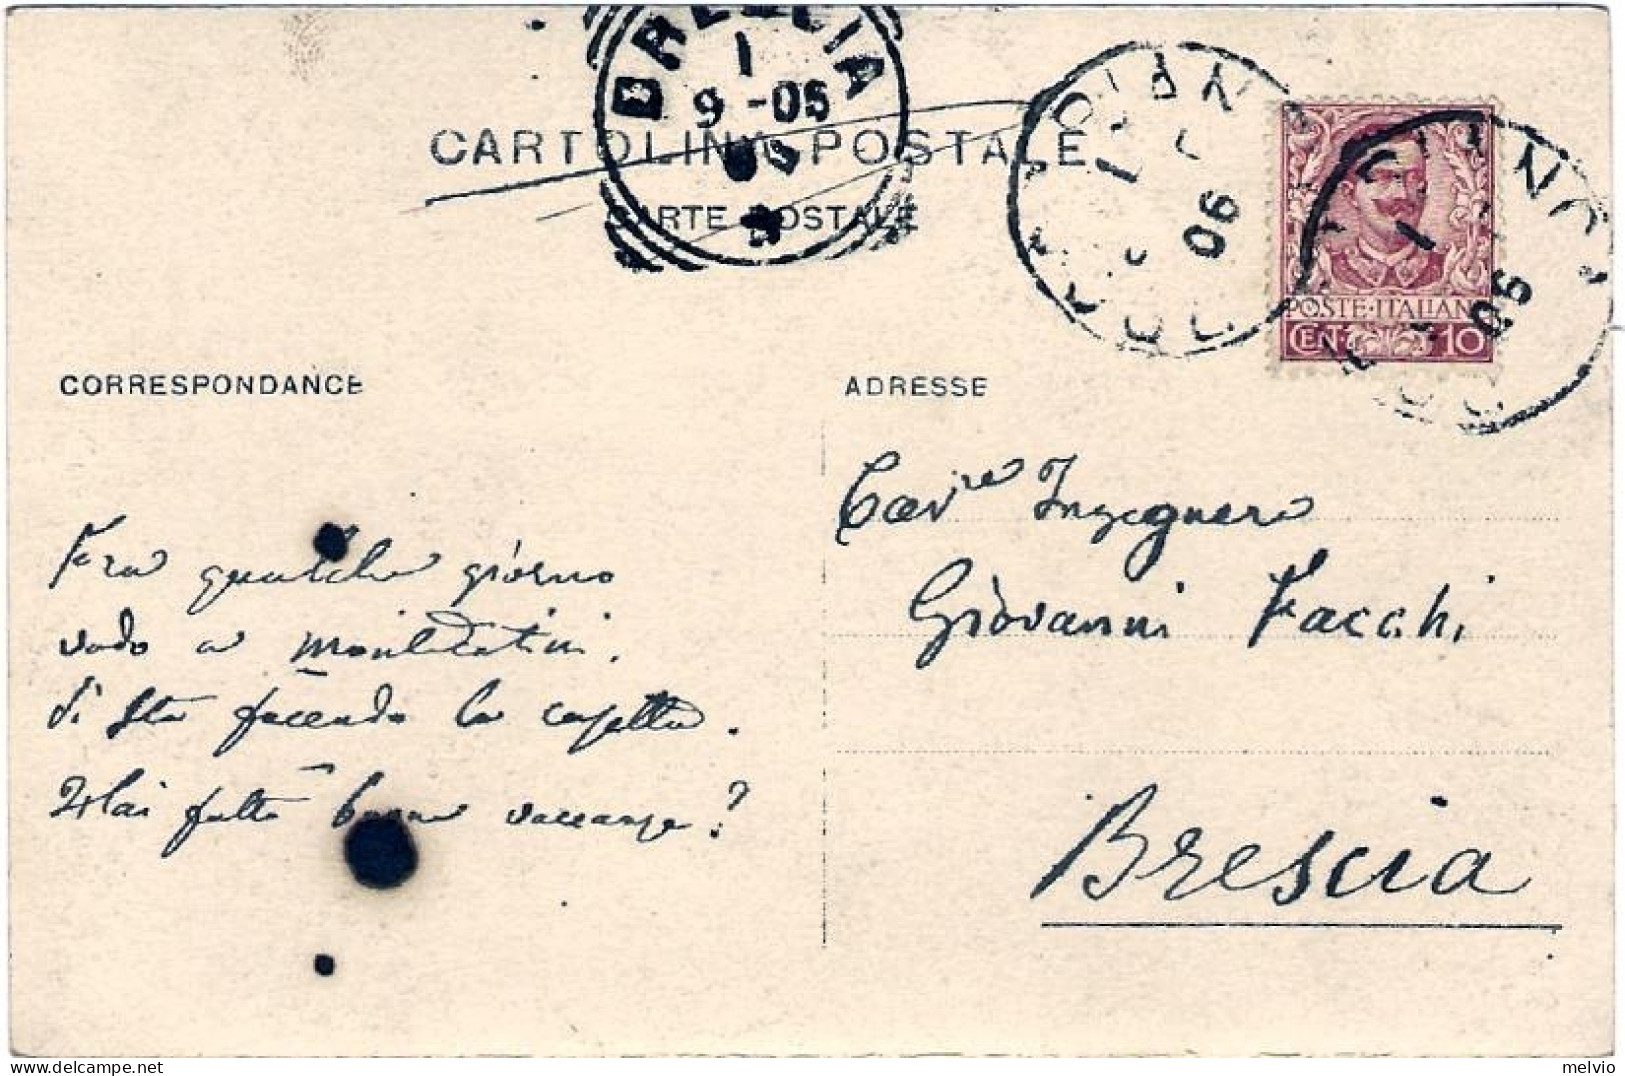 BRESCIA
1
9-05
CARTOLINA POSTALE
CARTE POSTALE
1
06
1
05
POSTE·ITALIANE
CENT. 10
CORRESPONDANCE
ADRESSE
Cav.re Ingegnere
Giovanni Facchi
Brescia
Fra qualche giorno
vado a Montecatini.
Si sta facendo la casetta.
Hai fatto buone vaccanze?
melvio